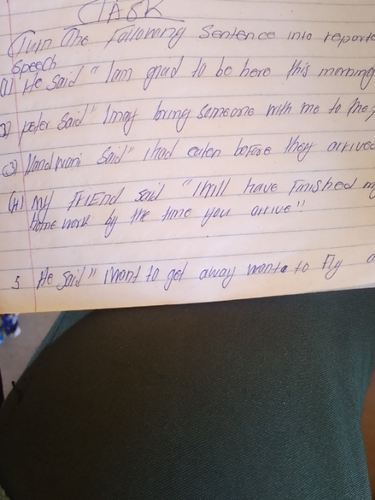 TASK
Turn The following Sentence into reporte
Speech
01) He said " I am glad to be here this morning
2) peter said " I may bring someone with me to the
(3) Vandwori said " I had eaten before they arrived
(4) My FRIEnd said " I Will have Finished my
home work by the time you arrive "
5 He Said " I want to get away want to Fly a